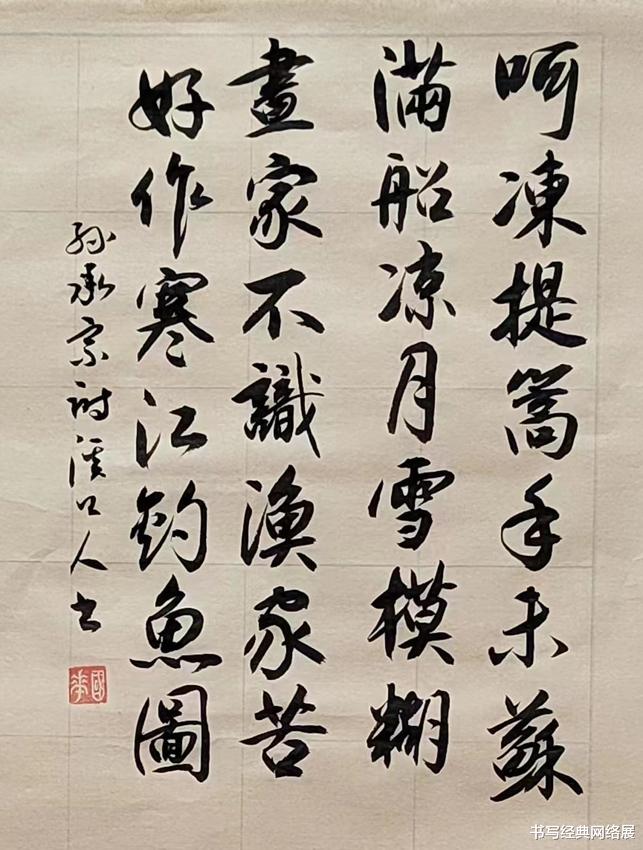 呵凍提篙手未蘇
滿船凉月雪模糊
畫家不識漁家苦
好作寒江釣魚圖
孫承宗詩溪口人书
國華
书写经典网络展